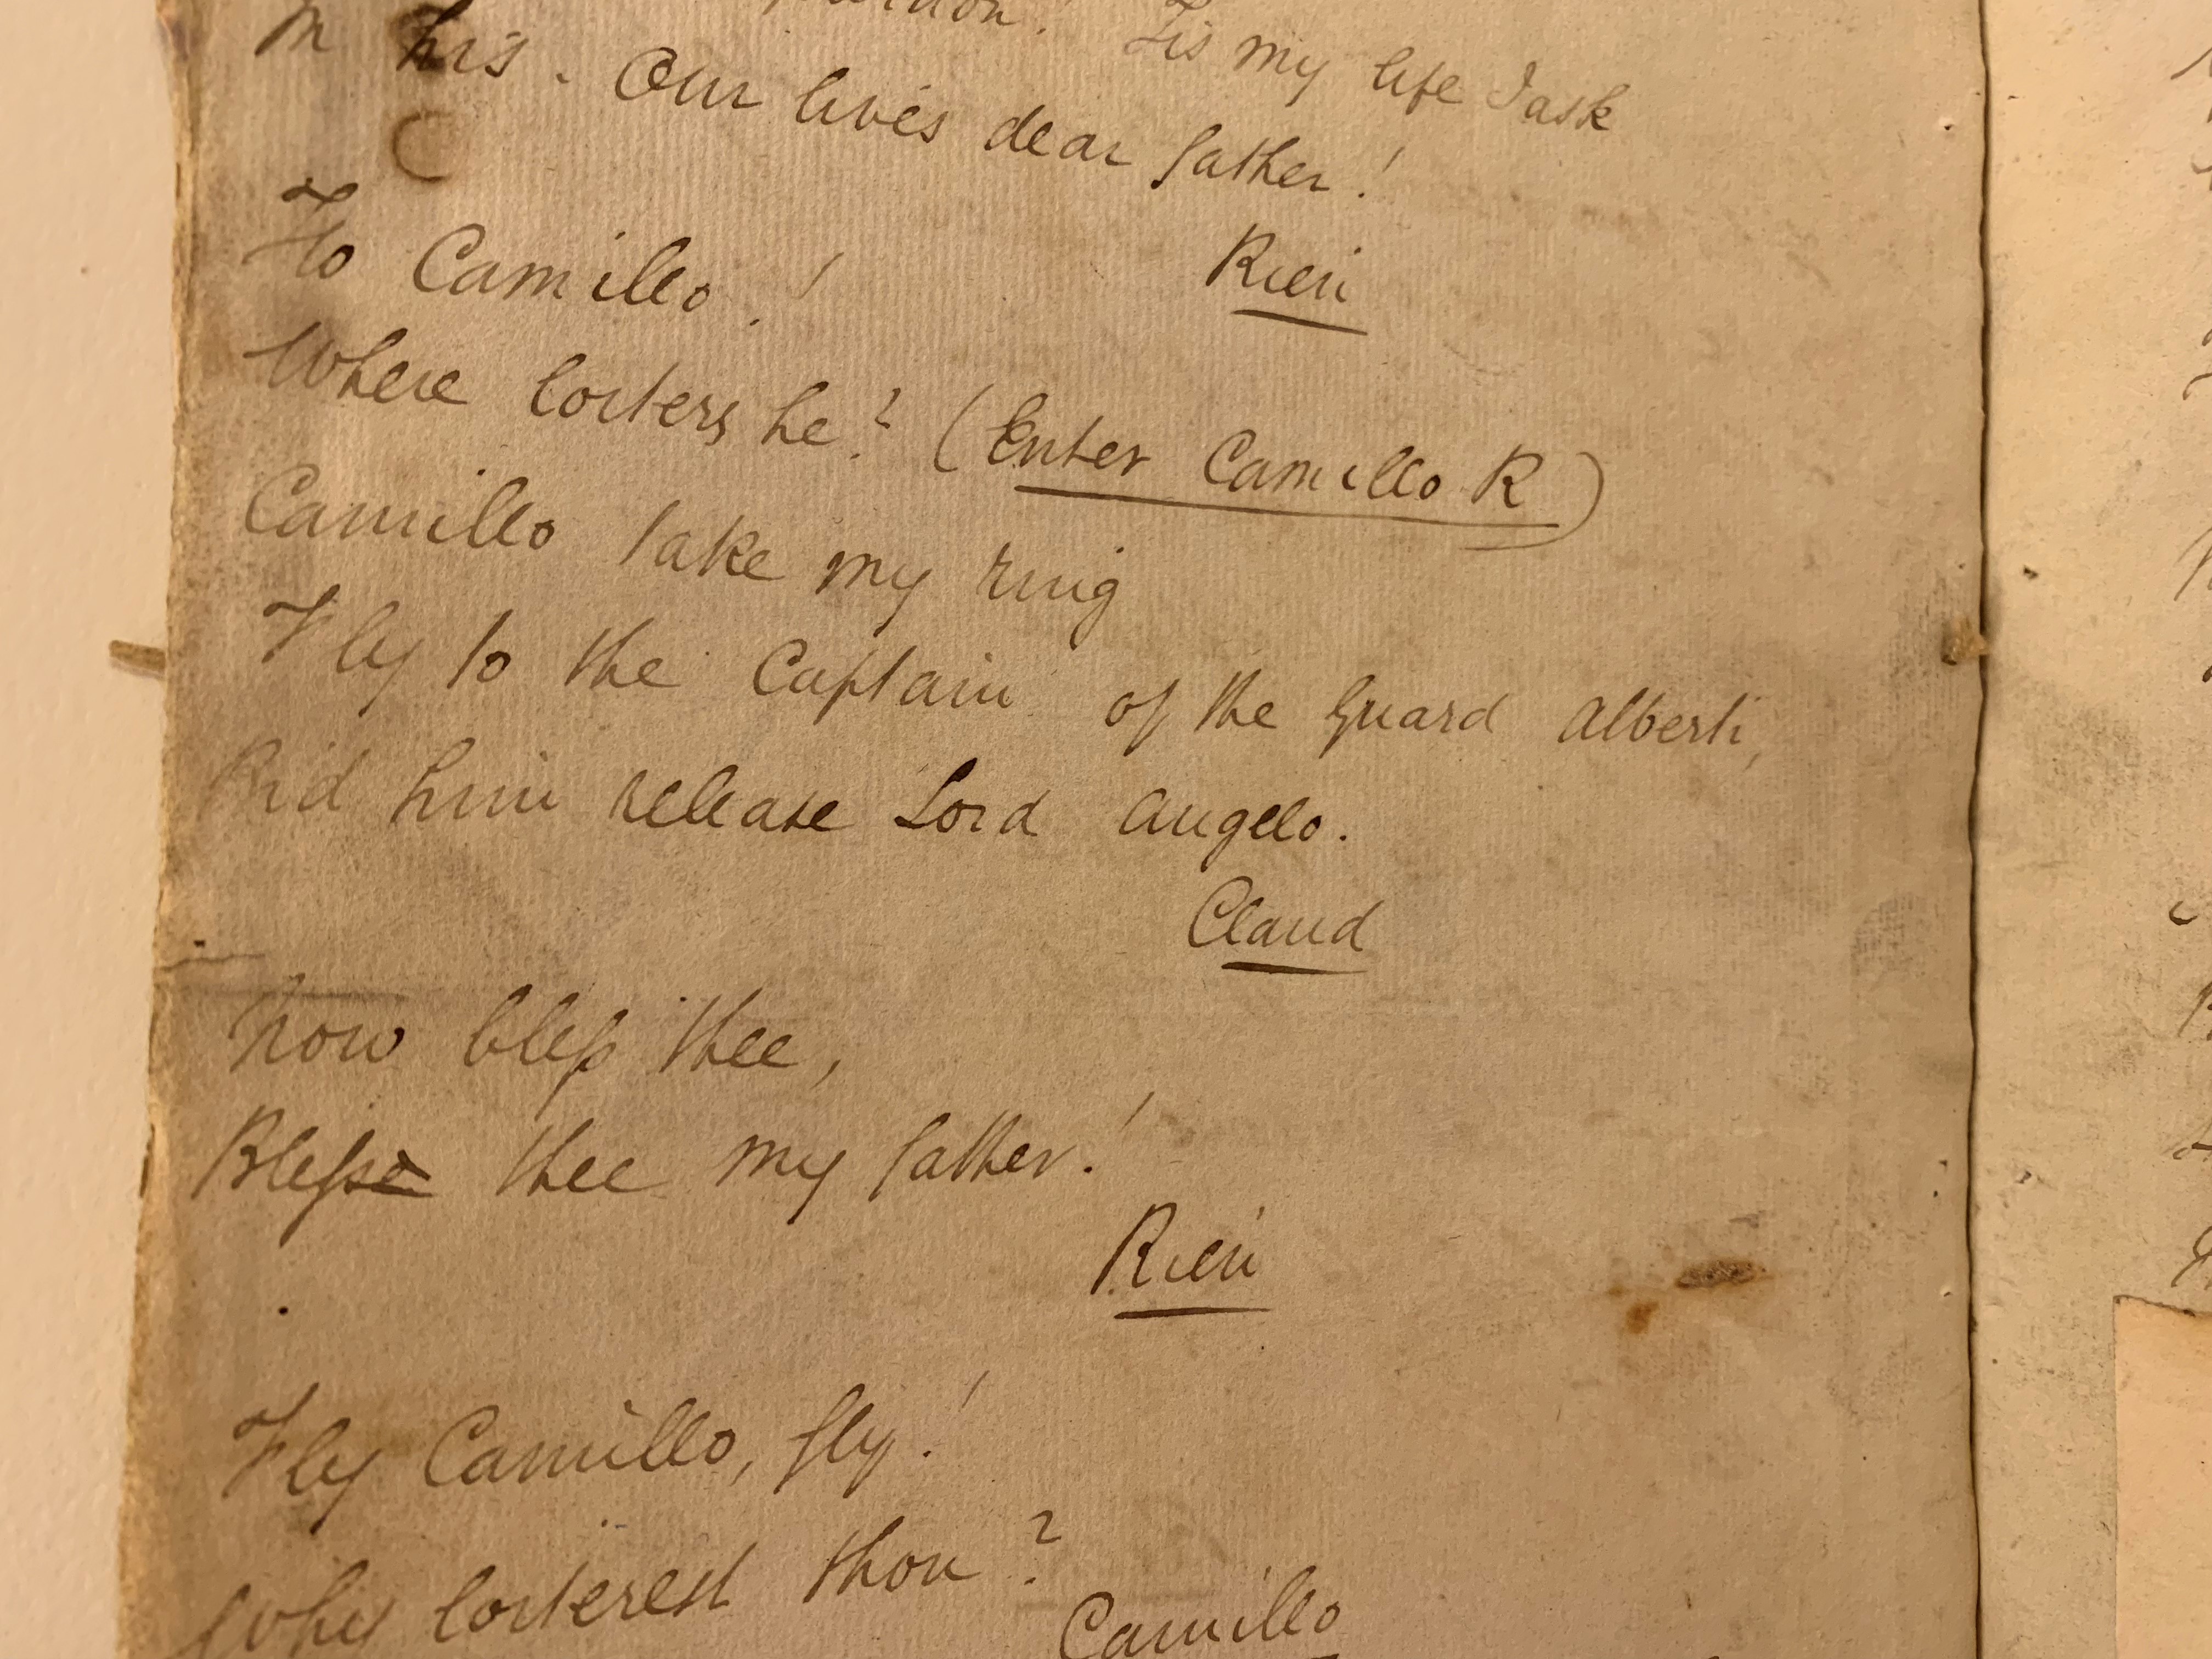 Tis my life I ask
In his. Our lives dear father!
Rieri
Ho Camillo!
Where loiters he? (Enter Camillo R)
Camillo take my ring
Fly to the Captain of the Guard Alberti,
Bid him release Lord Angelo.
Claud
Now bless thee,
Bless thee my father!
Rieri
Fly Camillo, fly!
Why loiterest thou?
Camillo